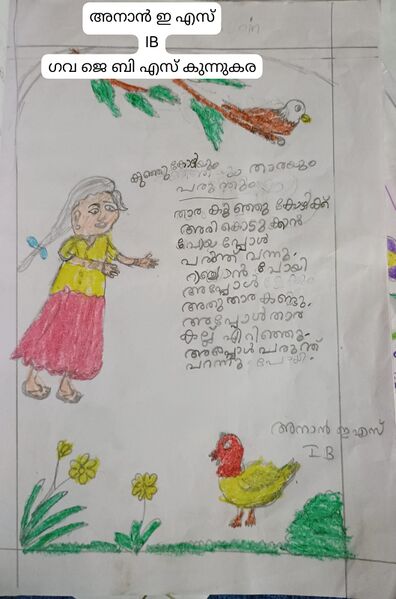 അനാൻ ഇ എസ്
IB
ഗവ ജെ ബി എസ് കുന്നുകര
കുഞ്ഞുകോഴിയും താരയും
പരുന്തും
താര കുഞ്ഞു കോഴിക്ക്
അരി കൊടുക്കാൻ
പോയപ്പോൾ
പരുന്ത് വന്നു.
റാഞ്ചാൻ പോയി
അപ്പോൾ
അതു താര കണ്ടു.
അപ്പോൾ താര
കല്ല് എറിഞ്ഞു.
അപ്പോൾ പരുന്ത്
പറന്നു പോയി.
അനാൻ ഇ എസ്
I B